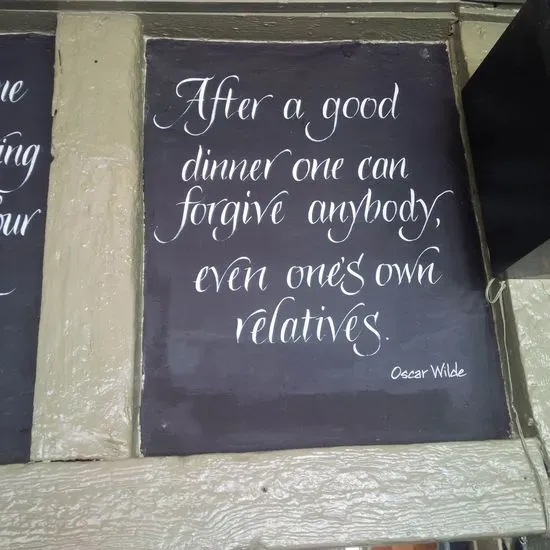 After a good
dinner one can
forgive anybody,
even one's own
relatives.
Oscar Wilde
ing